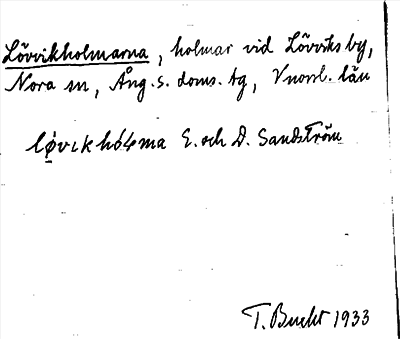 Lövvikholmarna, holmar vid Lövviks by,
Nora sn, Ång. s. doms. tg, Vnorrl. län
lǿvɩkhóɫ̣ma E. och D. Sandström
T. 1933